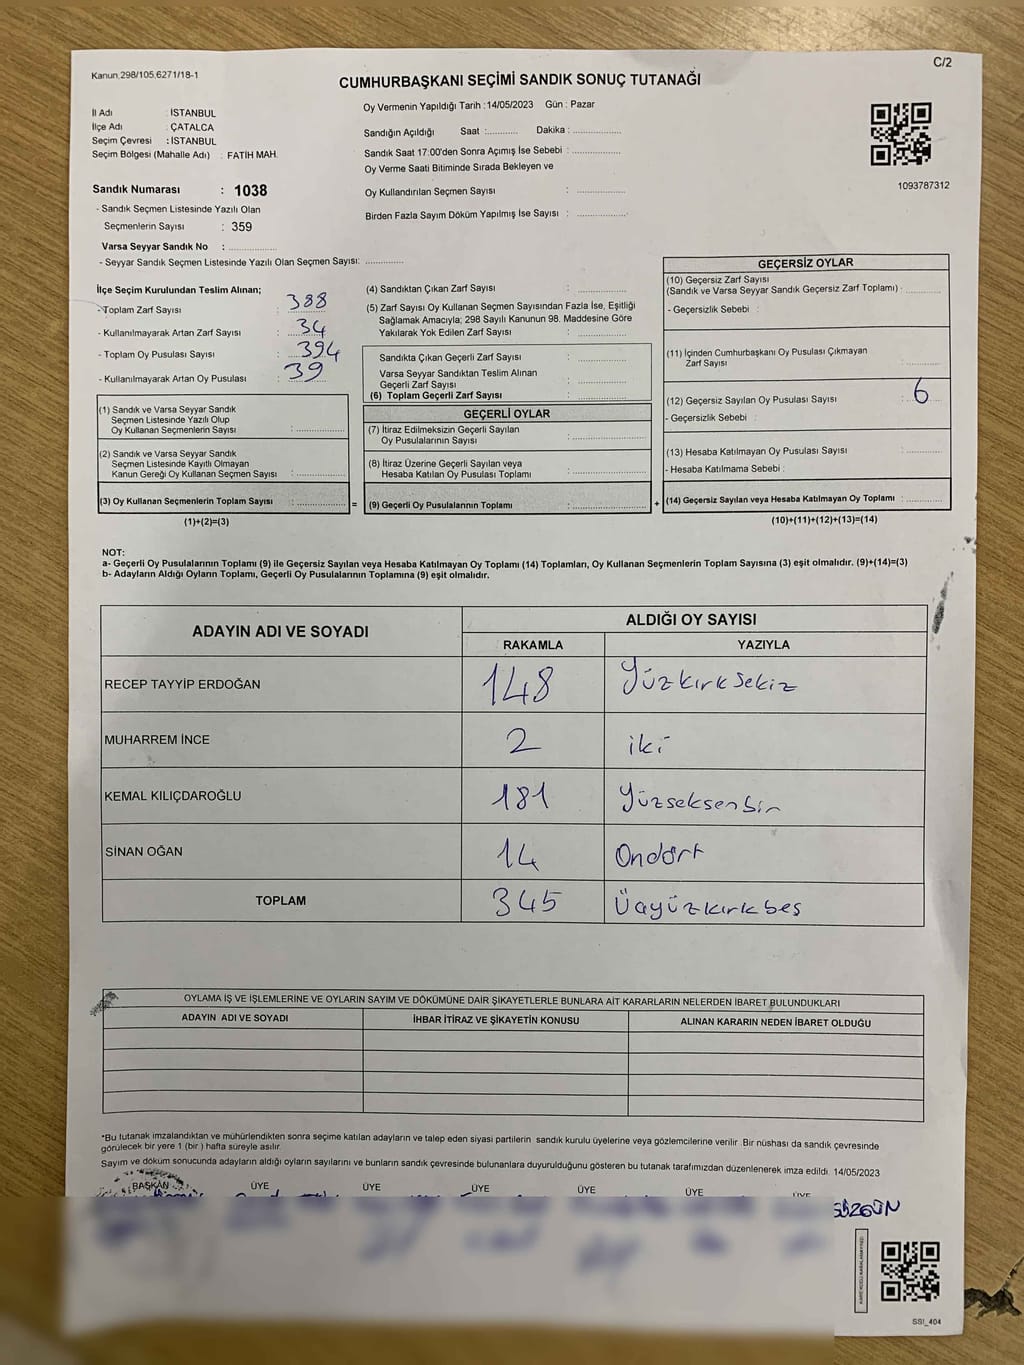 Kanun 298/105,6271/18-1
C/2
CUMHURBAŞKANI SEÇİMİ SANDIK SONUÇ TUTANAĞI
İl Adı : İSTANBUL
İlçe Adı : ÇATALCA
Seçim Çevresi : İSTANBUL
Seçim Bölgesi (Mahalle Adı) : FATİH MAH.
Sandık Numarası : 1038
- Sandık Seçmen Listesinde Yazılı Olan
Seçmenlerin Sayısı : 359
Varsa Seyyar Sandık No : ..............
- Seyyar Sandık Seçmen Listesinde Yazılı Olan Seçmen Sayısı: ............
Oy Vermenin Yapıldığı Tarih :14/05/2023 Gün : Pazar
Sandığın Açıldığı Saat :.......... Dakika : ...............
Sandık Saat 17:00'den Sonra Açımış İse Sebebi : ...............
Oy Verme Saati Bitiminde Sırada Bekleyen ve
Oy Kullandırılan Seçmen Sayısı : ...............
Birden Fazla Sayım Döküm Yapılmış İse Sayısı : ...............
1093787312
İlçe Seçim Kurulundan Teslim Alınan;
- Toplam Zarf Sayısı : 388
- Kullanılmayarak Artan Zarf Sayısı : 34
- Toplam Oy Pusulası Sayısı : 394
- Kullanılmayarak Artan Oy Pusulası : 39
(1) Sandık ve Varsa Seyyar Sandık
Seçmen Listesinde Yazılı Olup
Oy Kullanan Seçmenlerin Sayısı : ...............
(2) Sandık ve Varsa Seyyar Sandık
Seçmen Listesinde Kayıtlı Olmayan
Kanun Gereği Oy Kullanan Seçmen Sayısı : ...............
(3) Oy Kullanan Seçmenlerin Toplam Sayısı : ............... =
(1)+(2)=(3)
(4) Sandıktan Çıkan Zarf Sayısı : ...............
(5) Zarf Sayısı Oy Kullanan Seçmen Sayısından Fazla İse, Eşitliği
Sağlamak Amacıyla; 298 Sayılı Kanunun 98. Maddesine Göre
Yakılarak Yok Edilen Zarf Sayısı : ...............
Sandıkta Çıkan Geçerli Zarf Sayısı : ...............
Varsa Seyyar Sandıktan Teslim Alınan
Geçerli Zarf Sayısı : ...............
(6) Toplam Geçerli Zarf Sayısı : ...............
GEÇERLİ OYLAR
(7) İtiraz Edilmeksizin Geçerli Sayılan
Oy Pusulalarının Sayısı : ...............
(8) İtiraz Üzerine Geçerli Sayılan veya
Hesaba Katılan Oy Pusulası Toplamı : ...............
(9) Geçerli Oy Pusulalarının Toplamı : ............... +
GEÇERSİZ OYLAR
(10) Geçersiz Zarf Sayısı
(Sandık ve Varsa Seyyar Sandık Geçersiz Zarf Toplamı) : ............
- Geçersizlik Sebebi :
(11) İçinden Cumhurbaşkanı Oy Pusulası Çıkmayan
Zarf Sayısı : ............
(12) Geçersiz Sayılan Oy Pusulası Sayısı : 6
- Geçersizlik Sebebi :
(13) Hesaba Katılmayan Oy Pusulası Sayısı : ............
- Hesaba Katılmama Sebebi :
(14) Geçersiz Sayılan veya Hesaba Katılmayan Oy Toplamı : ............
(10)+(11)+(12)+(13)=(14)
NOT:
a- Geçerli Oy Pusulalarının Toplamı (9) ile Geçersiz Sayılan veya Hesaba Katılmayan Oy Toplamı (14) Toplamları, Oy Kullanan Seçmenlerin Toplam Sayısına (3) eşit olmalıdır. (9)+(14)=(3)
b- Adayların Aldığı Oyların Toplamı, Geçerli Oy Pusulalarının Toplamına (9) eşit olmalıdır.
ADAYIN ADI VE SOYADI ALDIĞI OY SAYISI
RAKAMLA YAZIYLA
RECEP TAYYİP ERDOĞAN 148 Yüzkırksekiz
MUHARREM İNCE 2 iki
KEMAL KILIÇDAROĞLU 181 Yüzseksenbir
SİNAN OĞAN 14 Ondört
TOPLAM 345 Üçyüzkırkbeş
OYLAMA İŞ VE İŞLEMLERİNE VE OYLARIN SAYIM VE DÖKÜMÜNE DAİR ŞİKAYETLERLE BUNLARA AİT KARARLARIN NELERDEN İBARET BULUNDUKLARI
ADAYIN ADI VE SOYADI İHBAR İTİRAZ VE ŞİKAYETİN KONUSU ALINAN KARARIN NEDEN İBARET OLDUĞU
*Bu tutanak imzalandıktan ve mühürlendikten sonra seçime katılan adayların ve talep eden siyasi partilerin sandık kurulu üyelerine veya gözlemcilerine verilir .Bir nüshası da sandık çevresinde
görülecek bir yere 1 (bir ) hafta süreyle asılır.
Sayım ve döküm sonucunda adayların aldığı oyların sayılarını ve bunların sandık çevresinde bulunanlara duyurulduğunu gösteren bu tutanak tarafımızdan düzenlenerek imza edildi. 14/05/2023
BAŞKAN ÜYE ÜYE ÜYE ÜYE ÜYE ÜYE
SSI_404